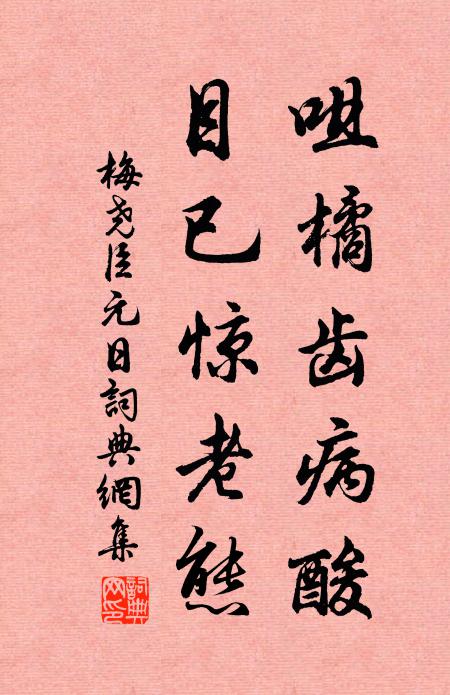 咀橘齿病酸
目已惊老態
梅尧臣元日詞典網集
詞典网印